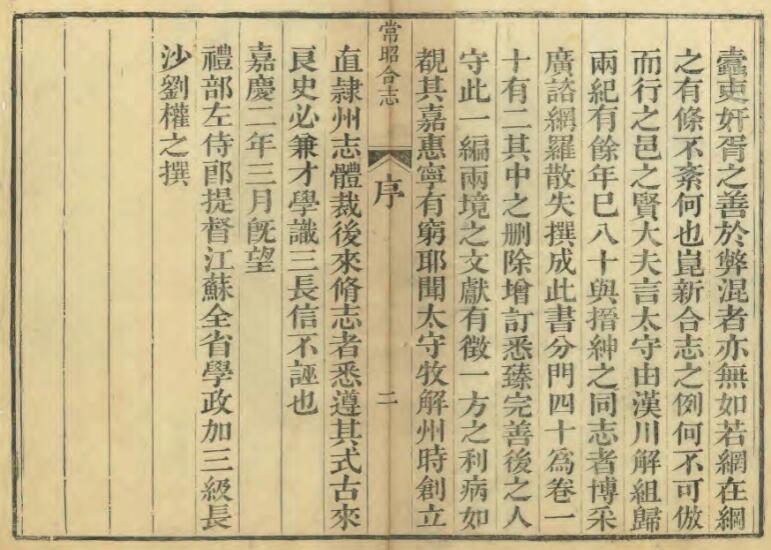 蠧吏奸胥之善於弊混者亦無如若網在綱
之有條不紊何也崑新合志之例何不可倣
而行之邑之賢大夫言太守由漢川解組歸
兩紀有餘年巳八十與搢紳之同志者博采
廣諮網羅散失撰成此書分門四十爲卷一
十有二其中之刪除增訂悉臻完善後之人
守此一編兩境之文獻有徵一方之利病如
觀其嘉惠寧有窮耶聞太守牧解州時創立
常昭合志 序 二
直隷州志體裁後來脩志者悉遵其式古來
良史必兼才學識三長信不誣也
嘉慶二年三月旣望
禮部左侍郎提督江蘇全省學政加三級長
沙劉權之撰